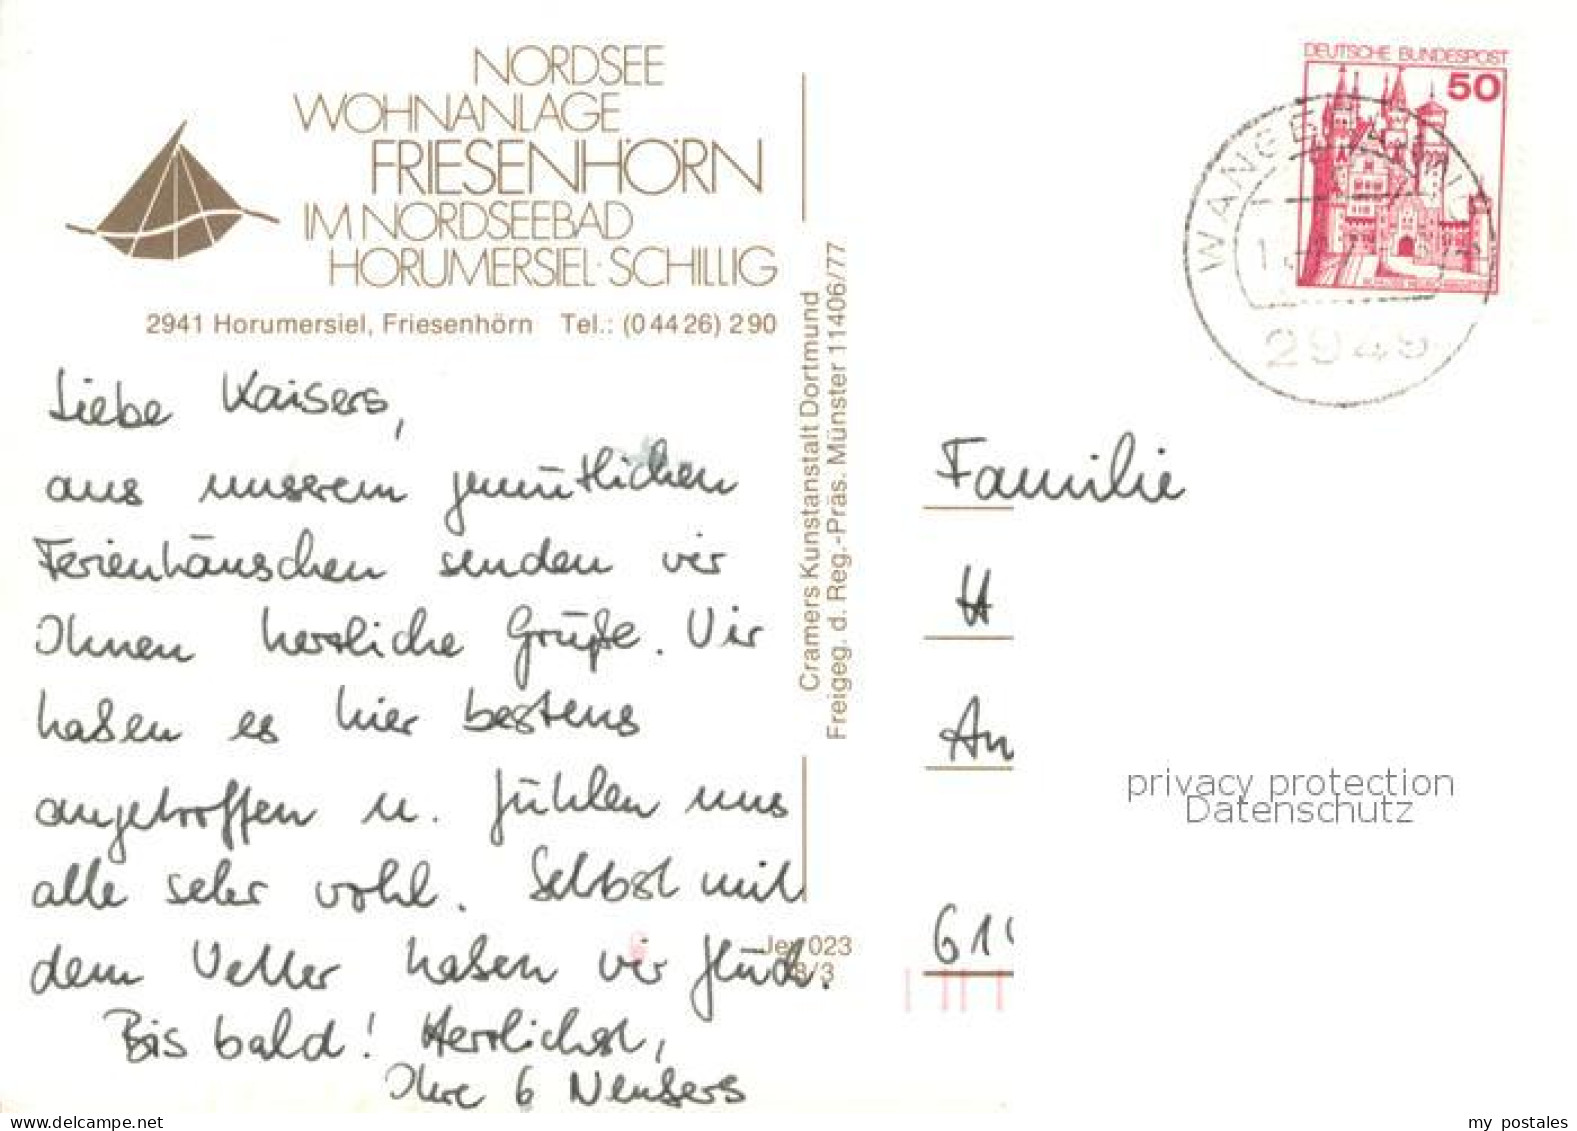 NORDSEE
WOHNANLAGE
FRIESENHÖRN
IM NORDSEEBAD
HORUMERSIEL·SCHILLIG
2941 Horumersiel, Friesenhörn Tel.: (0 44 26) 2 90
Liebe Kaisers,
aus unserem gemütlichen
Ferienhäuschen senden wir
Ihnen herzliche Grüße. Wir
haben es hier bestens
angetroffen u. fühlen uns
alle sehr wohl. Selbst mit
dem Wetter haben wir Glück.
Bis bald! Herzlichst,
Ihre 6 Neusers
Cramers Kunstanstalt Dortmund
Freigeg. d. Reg.-Präs. Münster 11406/77
Jev 023
8/3
DEUTSCHE BUNDESPOST
50
WANGE
2949
Familie
H
An
61
privacy protection
Datenschutz
delcampe.net
my postales